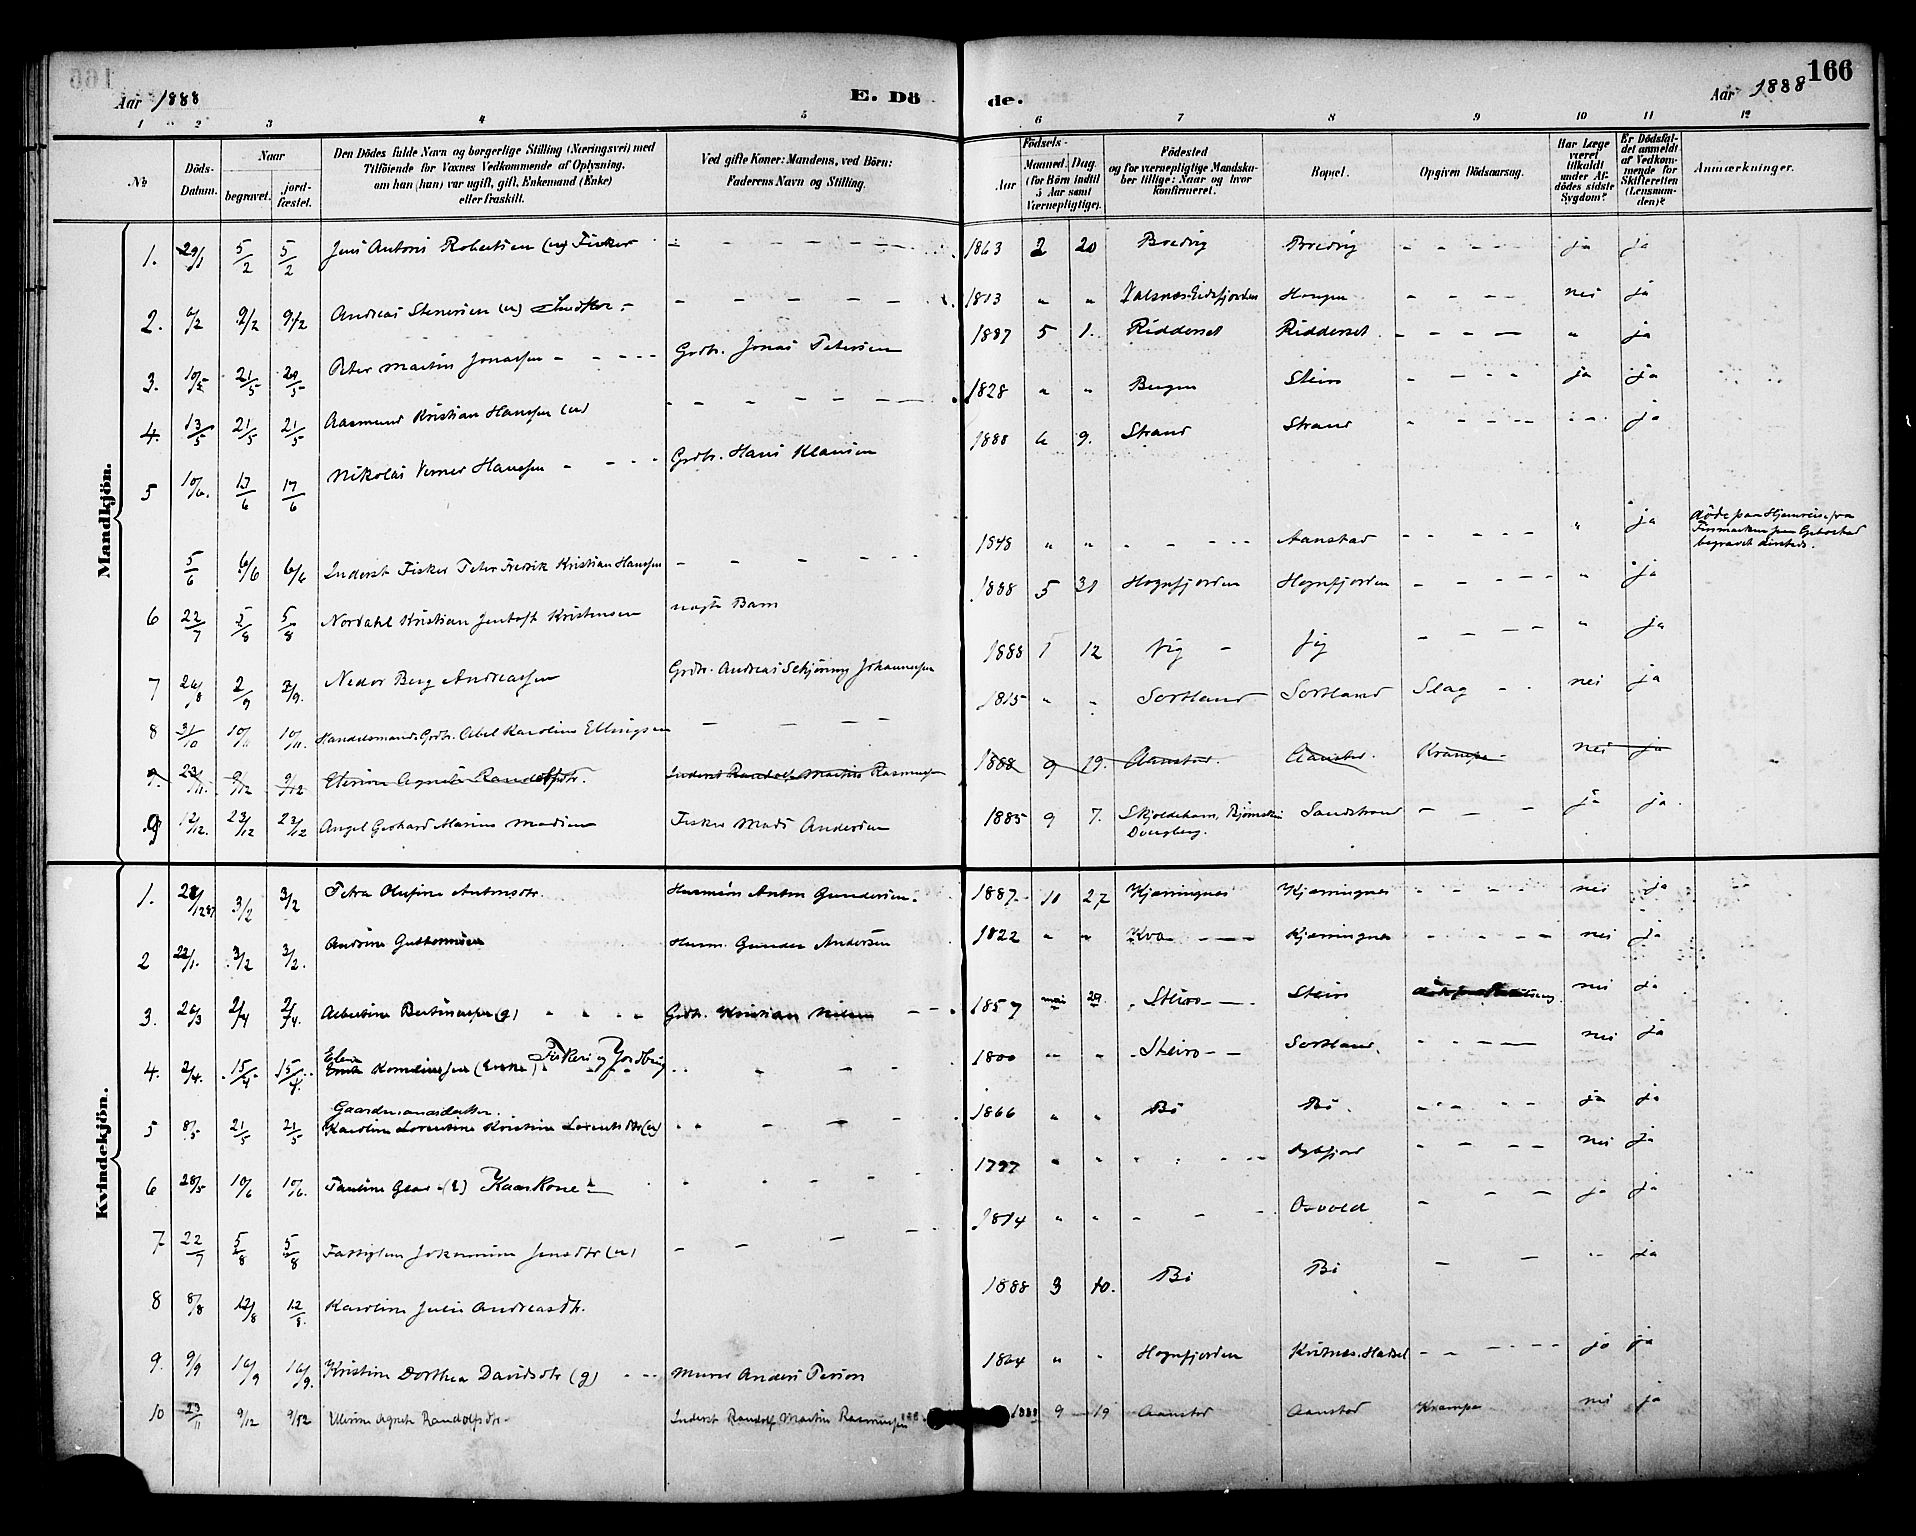 166
Aar 1888
E. Dö
de.
Aar 1888
1 2 3 4 5 6 7 8 9 10 11 12
No
Döds-Datum.
Naar
begravet.
jord-fæstet.
Den Dödes fulde Navn og borgerlige Stilling (Næringsvei) med
Tilföiende for Voxnes Vedkommende af Oplysning,
om han (hun) var ugift, gift, Enkemand (Enke)
eller fraskilt.
Ved gifte Koner: Mandens, ved Börn:
Faderens Navn og Stilling.
Födsels-
Aar
Maaned. Dag.
(for Börn indtil
5 Aar samt
Værnepligtige).
Födested
og for værnepligtige Mandska-
ber tillige: Naar og hvor
konfirmeret.
Bopæl.
Opgiven Dödsaarsag.
Har Læge
været
tilkaldt
under Af-
dödes sidste
Sygdom?
Er Dödsfal-
det anmeldt
af Vedkom-
mende for
Skifteretten
(Lensman-
den)?
Anmærkninger.
Mandkjön.
1. 29/1 5/2 5/2 Jens Antoni Robertsen (u) Fisker 1863 2 20 Bredvig Bredvig ja ja
2. 6/2 9/2 9/2 Andreas Stenersen (u) 1813 " " Valsnæs Eidsfjorden Haugen nei ja
3. 10/5 21/5 21/5 Peter Martin Jonassen Grdbr. Jonas Petersen 1887 5 1. Ridderset Ridderset " ja
4. 13/5 21/5 21/5 Aasmund Kristian Hanssen (u) 1828 " " Bergen Steiro ja ja
5 10/6. 17/6 17/6 Nikolai Verner Hanssen Grdbr. Hans Klausen 1888 6 9. Strand Strand ja
5/6 6/6 6/6 Inderst Fisker Peter Fredrik Kristian Hanssen 1848 " " Aanstad " ja döde paa Hjemreise fra
Finmarken paa Gibostad
begravet dersteds.
6 22/7 5/8 5/8 Nordahl Kristian Jentoft Kristensen uægte Barn 1888 5 31 Hognfjorden Hognfjorden " ja
7 26/8 2/9 2/9. Nedor Berg Andreassen Grdbr. Andreas Schjöning Johannessen 1888 1 12 Vig Jig " ja
8 31/10 10/11 10/11. Handelsmand, Grdbr. Abel Karolius Ellingsen 1815 " " Sortland Sortland Slag nei ja
9. 23/11. 9/12 9/12 Elerine Agnete Randolfsdtr. Inderst Randolf Martin Rasmussen 1888 9 19. Aanstad. Aanstad. Krampe nei ja
9 12/12. 23/12 23/12 Angel Gerhard Marius Madsen Fisker Mads Andersen 1885 9 7. Skjoldehavn, Bjørnskin
Dverberg. Sandstrand ja ja
Kvindekjön.
1. 28/12 87 3/2 3/2 Petra Olufine Antonsdtr. Husmand Anton Gundersen. 1887 10 27 Kjærringnes Kjærringnes nei ja
2 23/1. 3/2 3/2. Andrine Guttormsen Husm. Gunder Andersen 1822 " " Kvæ Kjærringnes nei ja
3. 26/3 2/4 2/4. Albertine Bertinasen (g) Grdbr. Kristian Nilsen 1857 mai 29. Steiro Steiro nei ja
4. 2/4. 15/4 15/4. Elen Korneliussen (Enke) Fiskeri og Jordbrug 1800 " " Steiro Sortland. nei ja
Gaardmandsdatter.
5 8/5 21/5 21/5 Karoline Lorentine Kristine Lorentsdtr (u) 1866 " " Bö Bö. ja ja
6 28/5 10/6 10/6. Pauline (E) Kaarkone 1797 " " nei ja
7 22/7 5/8 5/8 Johannine Jensdtr (u) 1814 " " Osvold ja ja
8 8/8 12/8 12/8. Karoline Julie Andreasdtr. 1888 3 10. Bö Bö ja
9. 9/9 16/9 16/9. Kristine Dorthea Davidsdtr (g) Murer Anders Person 1864 " " Hognfjorden Kvitnes, Hadsel ja ja
10 23/11 9/12 9/12 Ellerine Agnete Randolfsdtr Inderst Randolf Martin Rasmussen 1888 9 19 Aanstad Aanstad Krampe nei ja